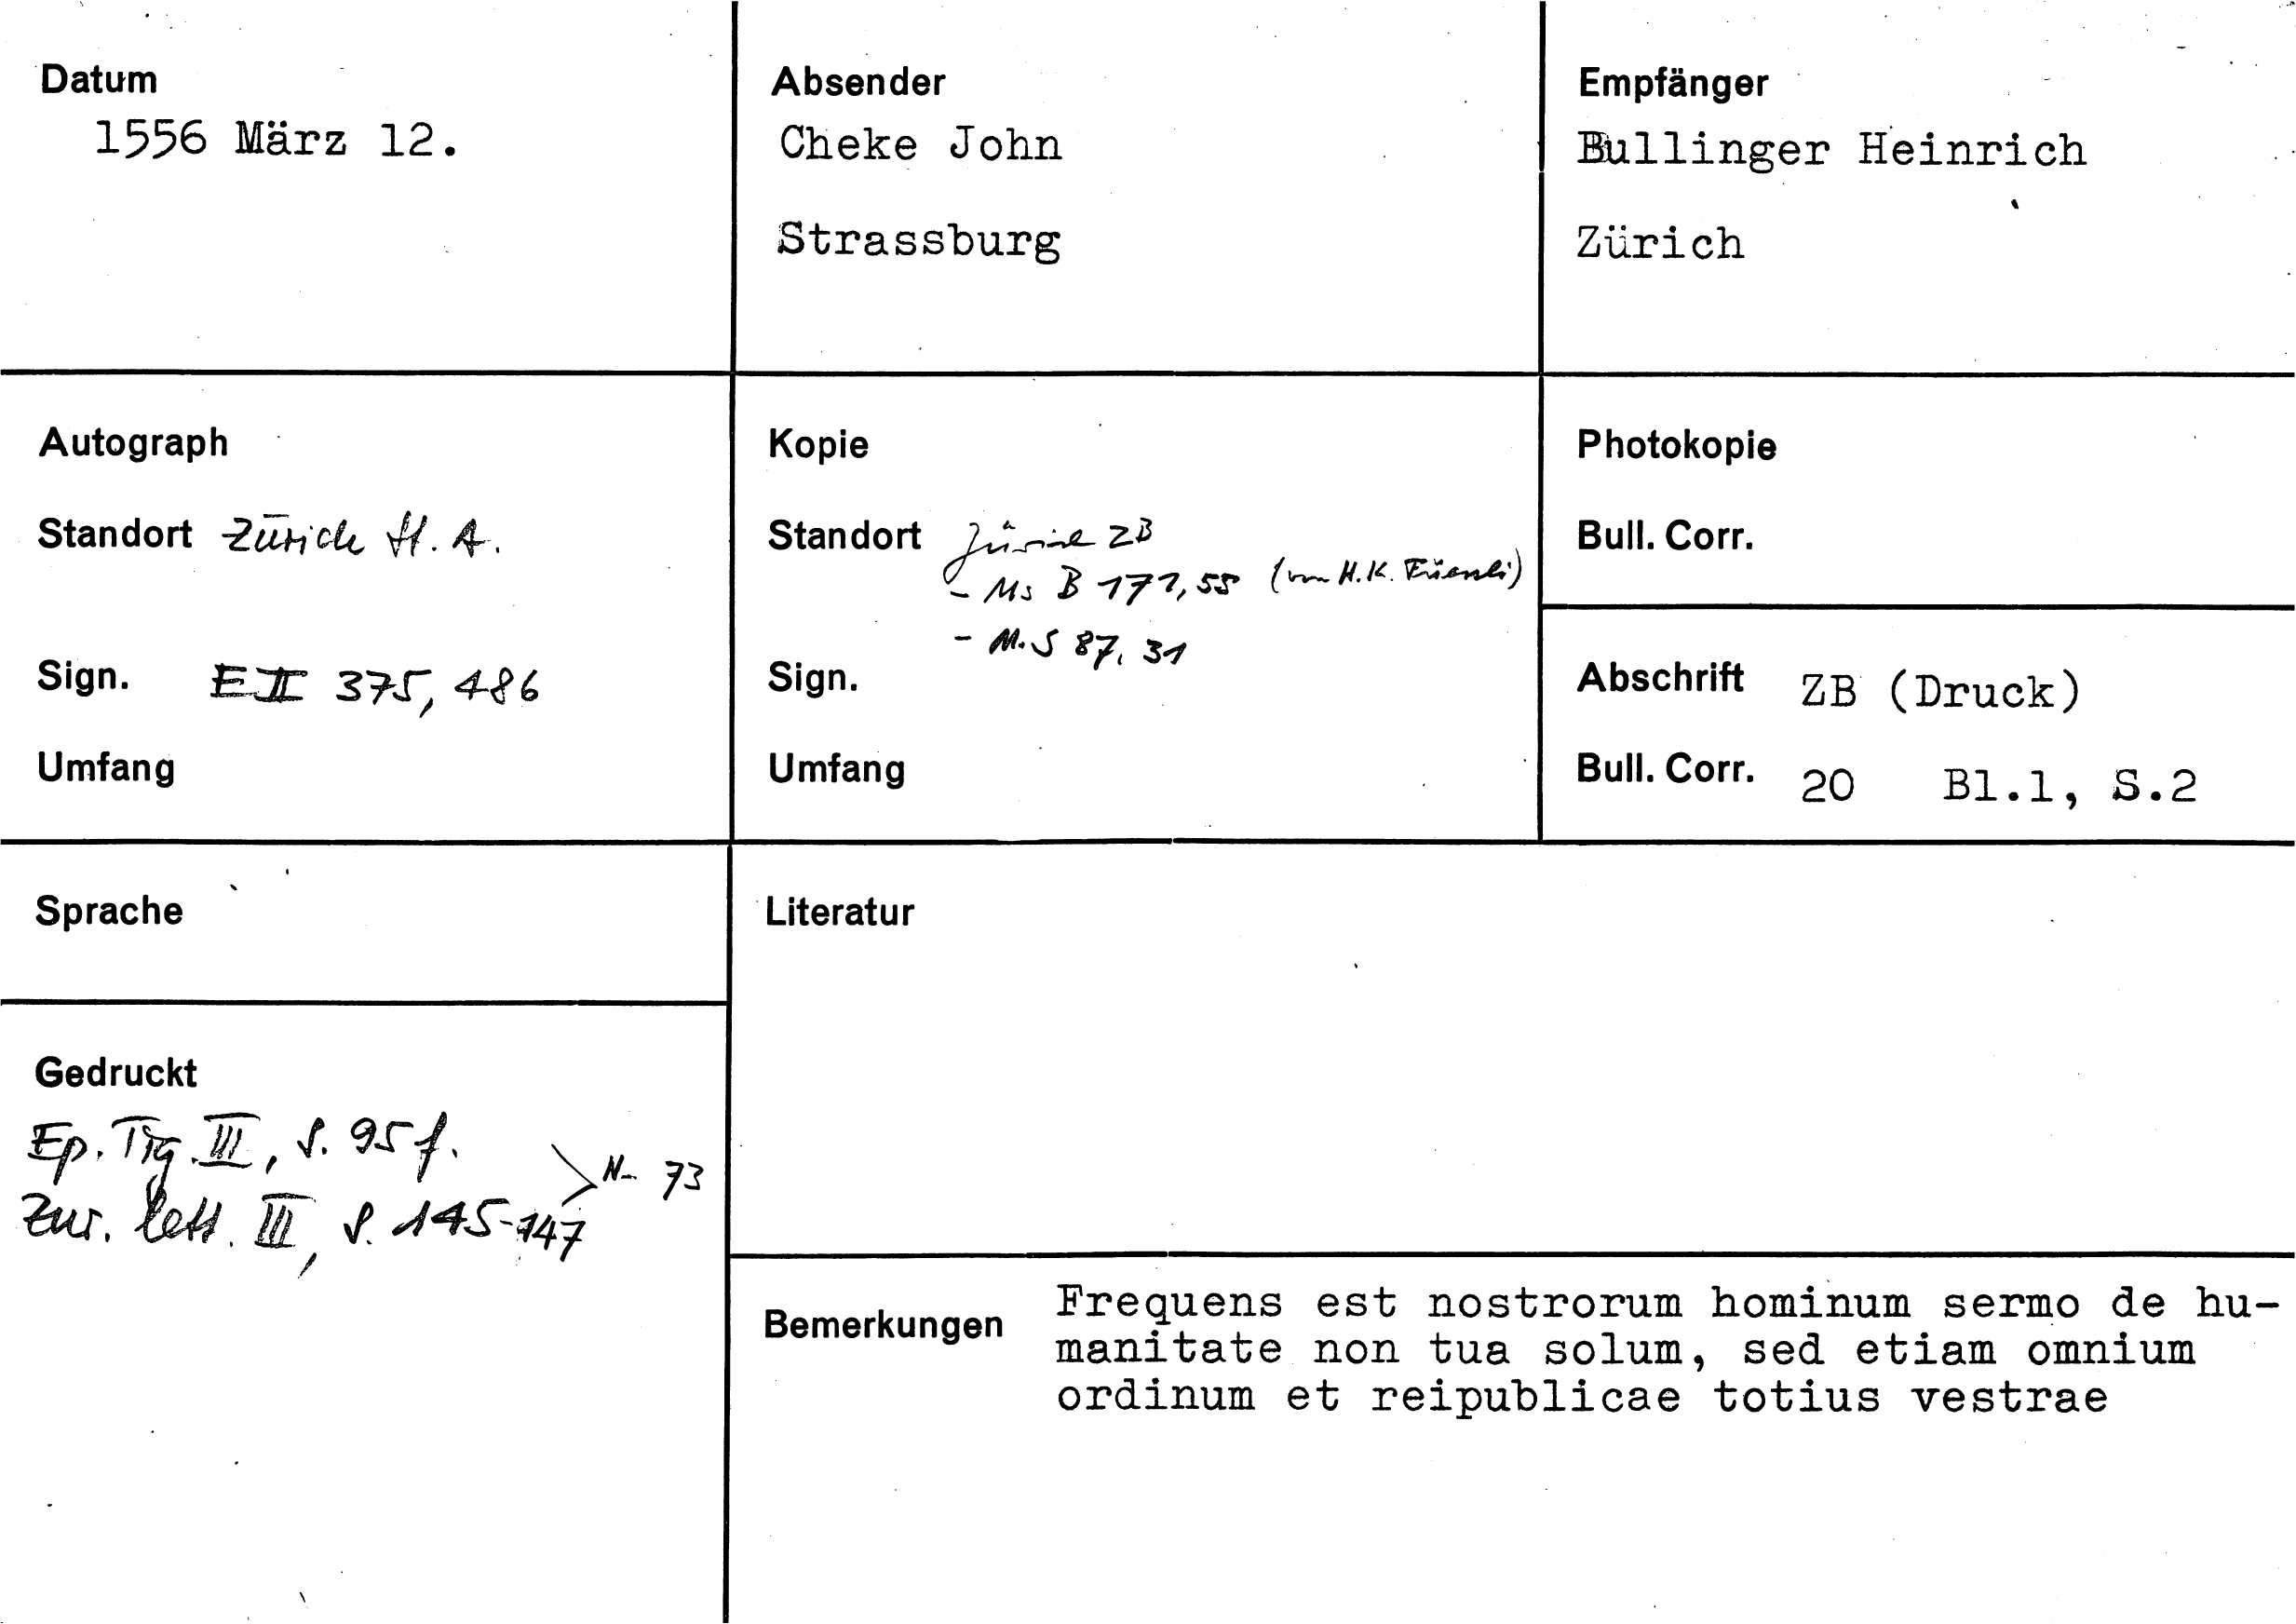 Datum
1556 März 12.
Absender
Cheke John
Strassburg
Empfänger
Bullinger Heinrich
Zürich
Autograph
Standort Zürich St. A.
Sign. E II 375, 486
Umfang
Kopie
Standort Zürich ZB
- Ms B 171, 55 (von H. K. Füessli)
- Ms S 87, 31
Sign.
Umfang
Photokopie
Bull. Corr.
Abschrift ZB (Druck)
Bull. Corr. 20 Bl.1, S.2
Sprache
Literatur
Gedruckt
Ep. Tig. III, S. 95 f.
Zur. Lett. III, S. 145-147
Nr 73
Bemerkungen
Frequens est nostrorum hominum sermo de hu-
manitate non tua solum, sed etiam omnium
ordinum et reipublicae totius vestrae